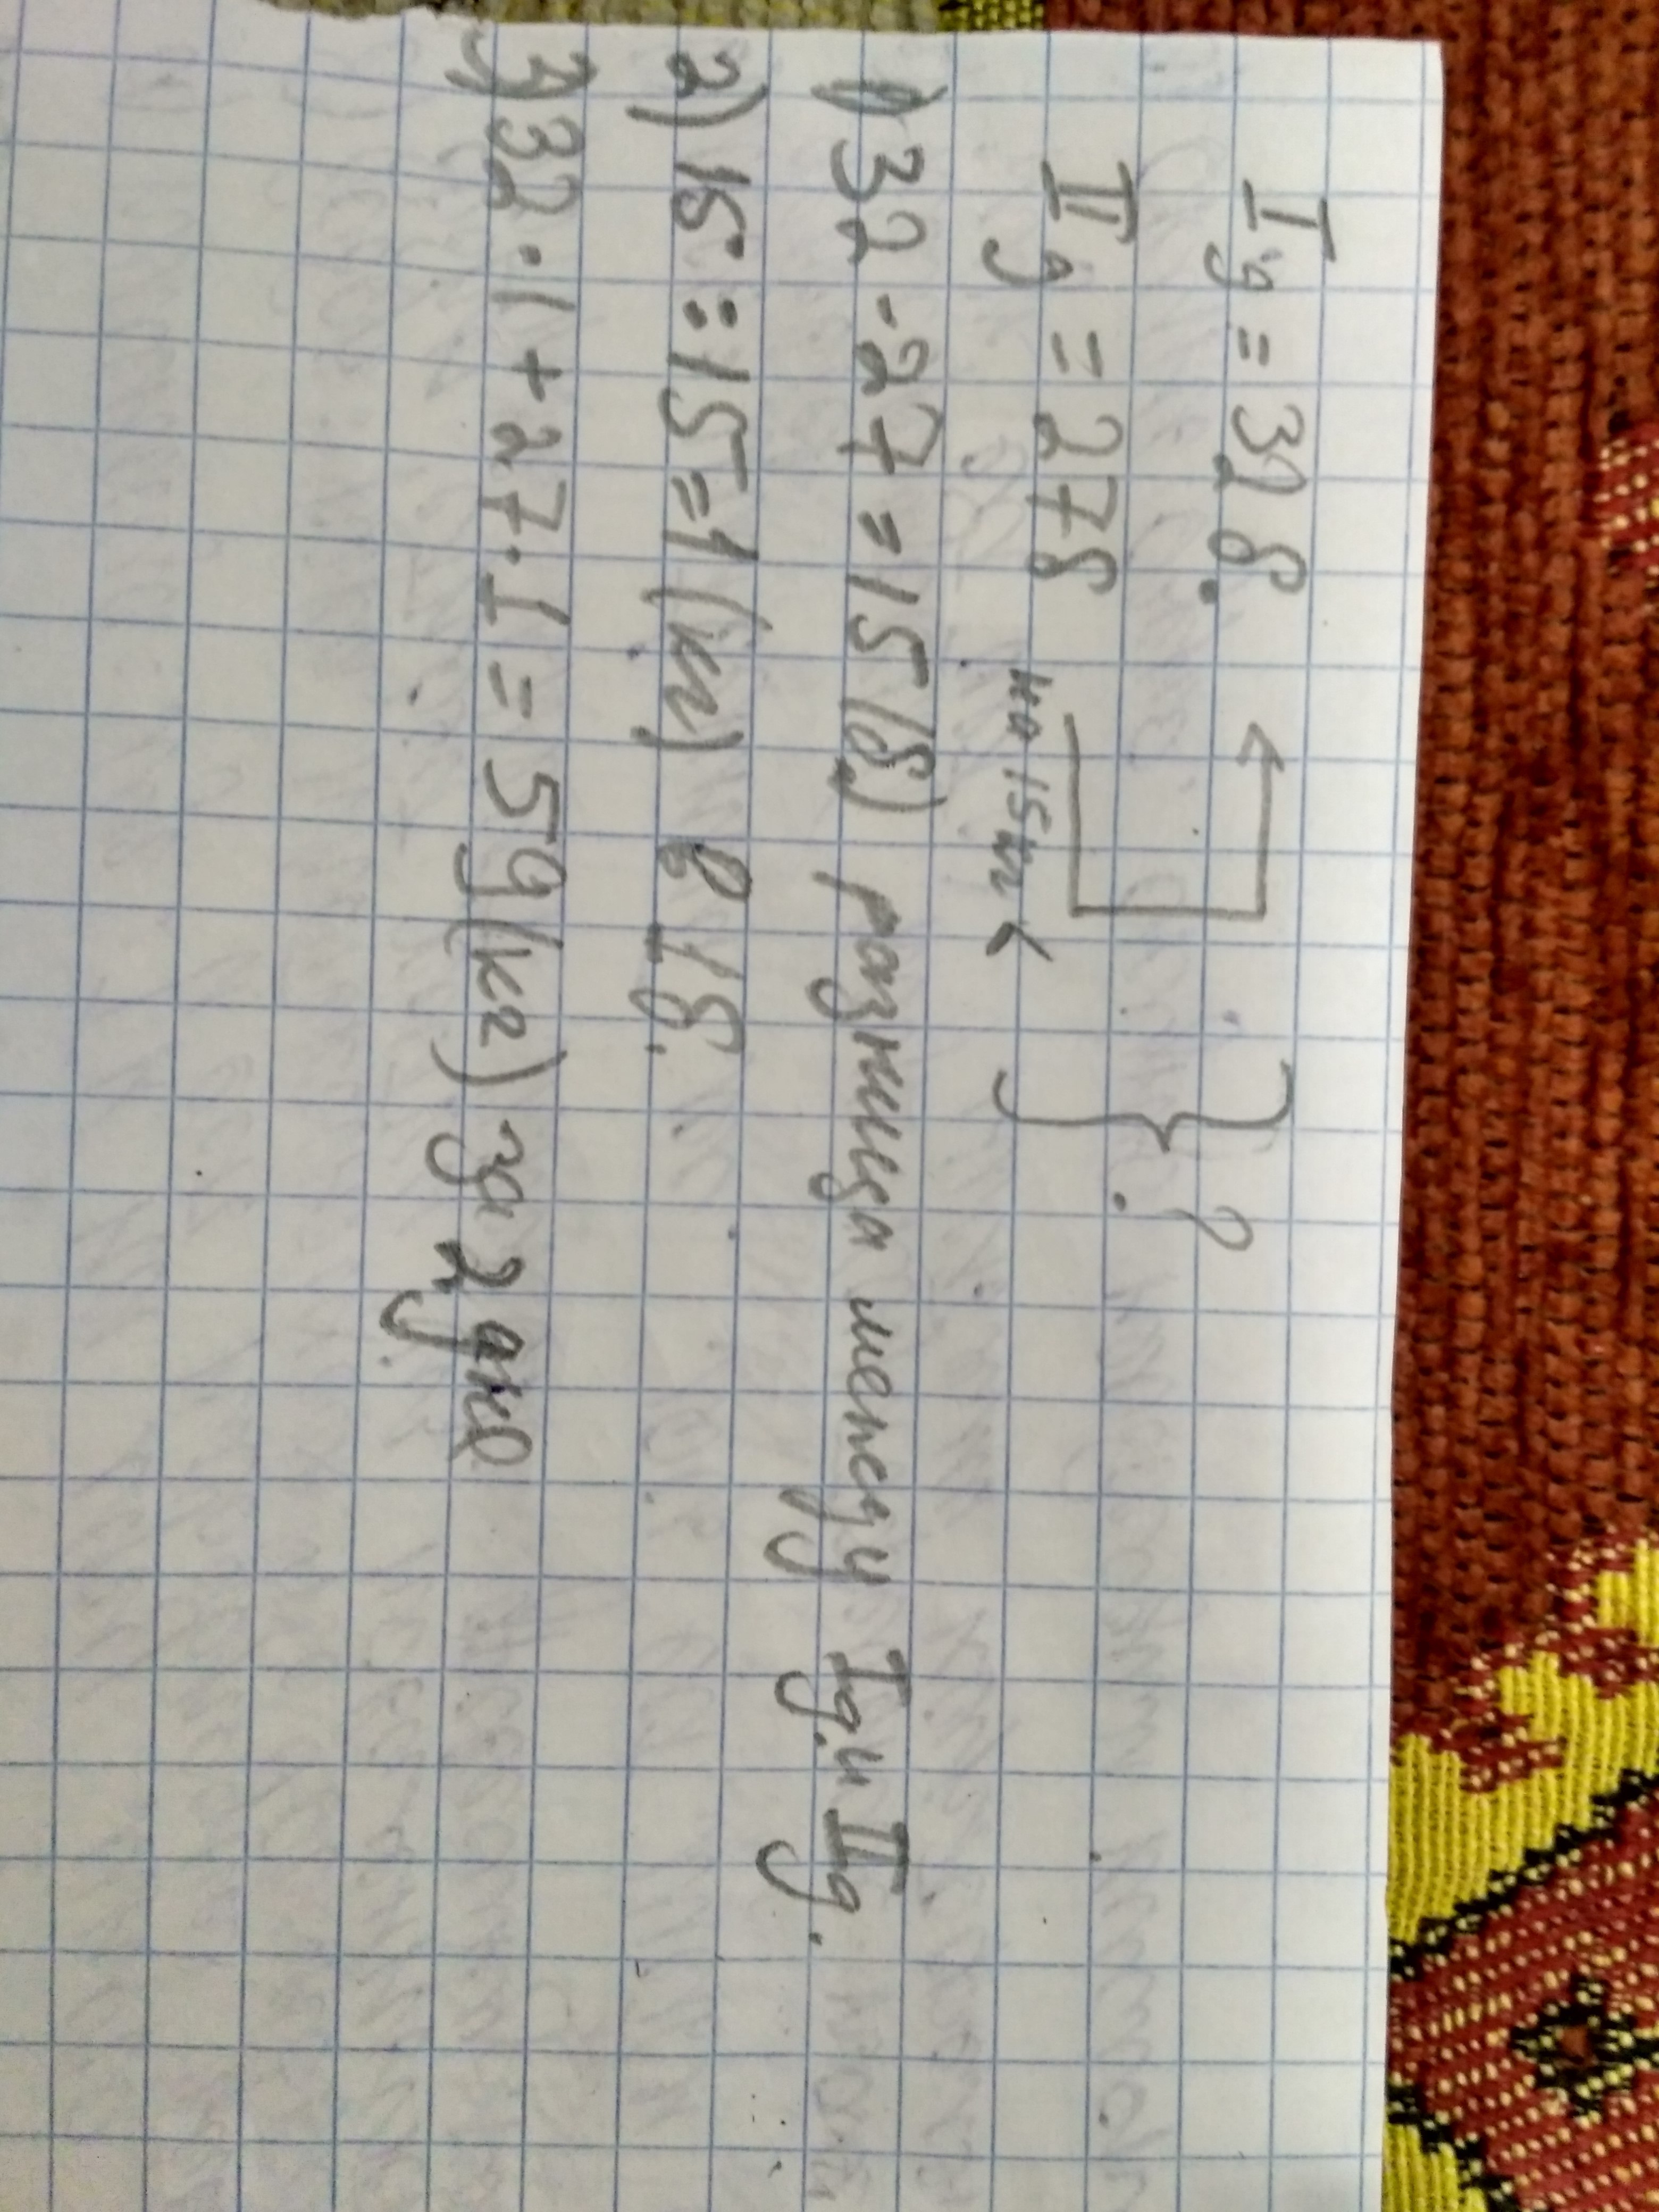 I д = 32 б.
II д = 27 б
на 15 кг <
} ?
1) 32 - 27 = 15 (б.) разница между I д. и II д.
2) 15 : 15 = 1 (кг) в 1 б.
3) 32 · 1 + 27 · 1 = 59 (кг) за 2 дня